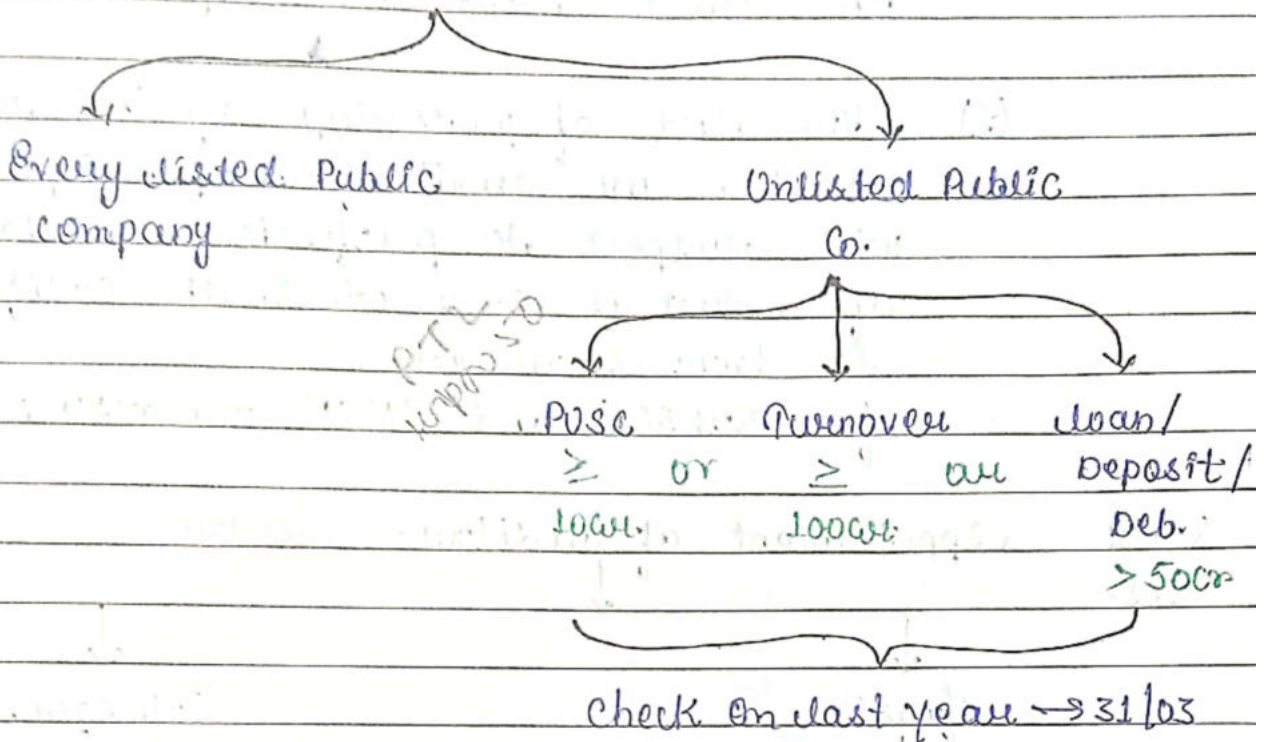 Every listed Public
company
Unlisted Public
Co.
PUSC
≥
10cr.
or
Turnover
≥
100cr.
or
Loan/
Deposit/
Deb.
> 50cr
Check on last year → 31/03